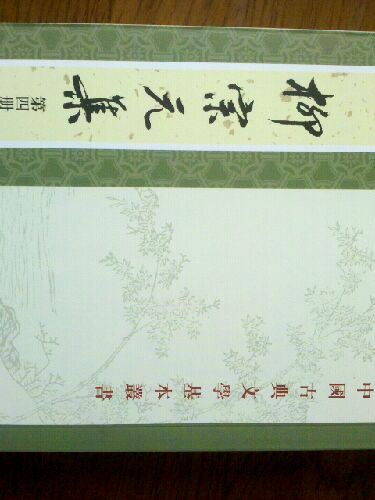 柳宗元集
第四册
中國古典文學基本叢書